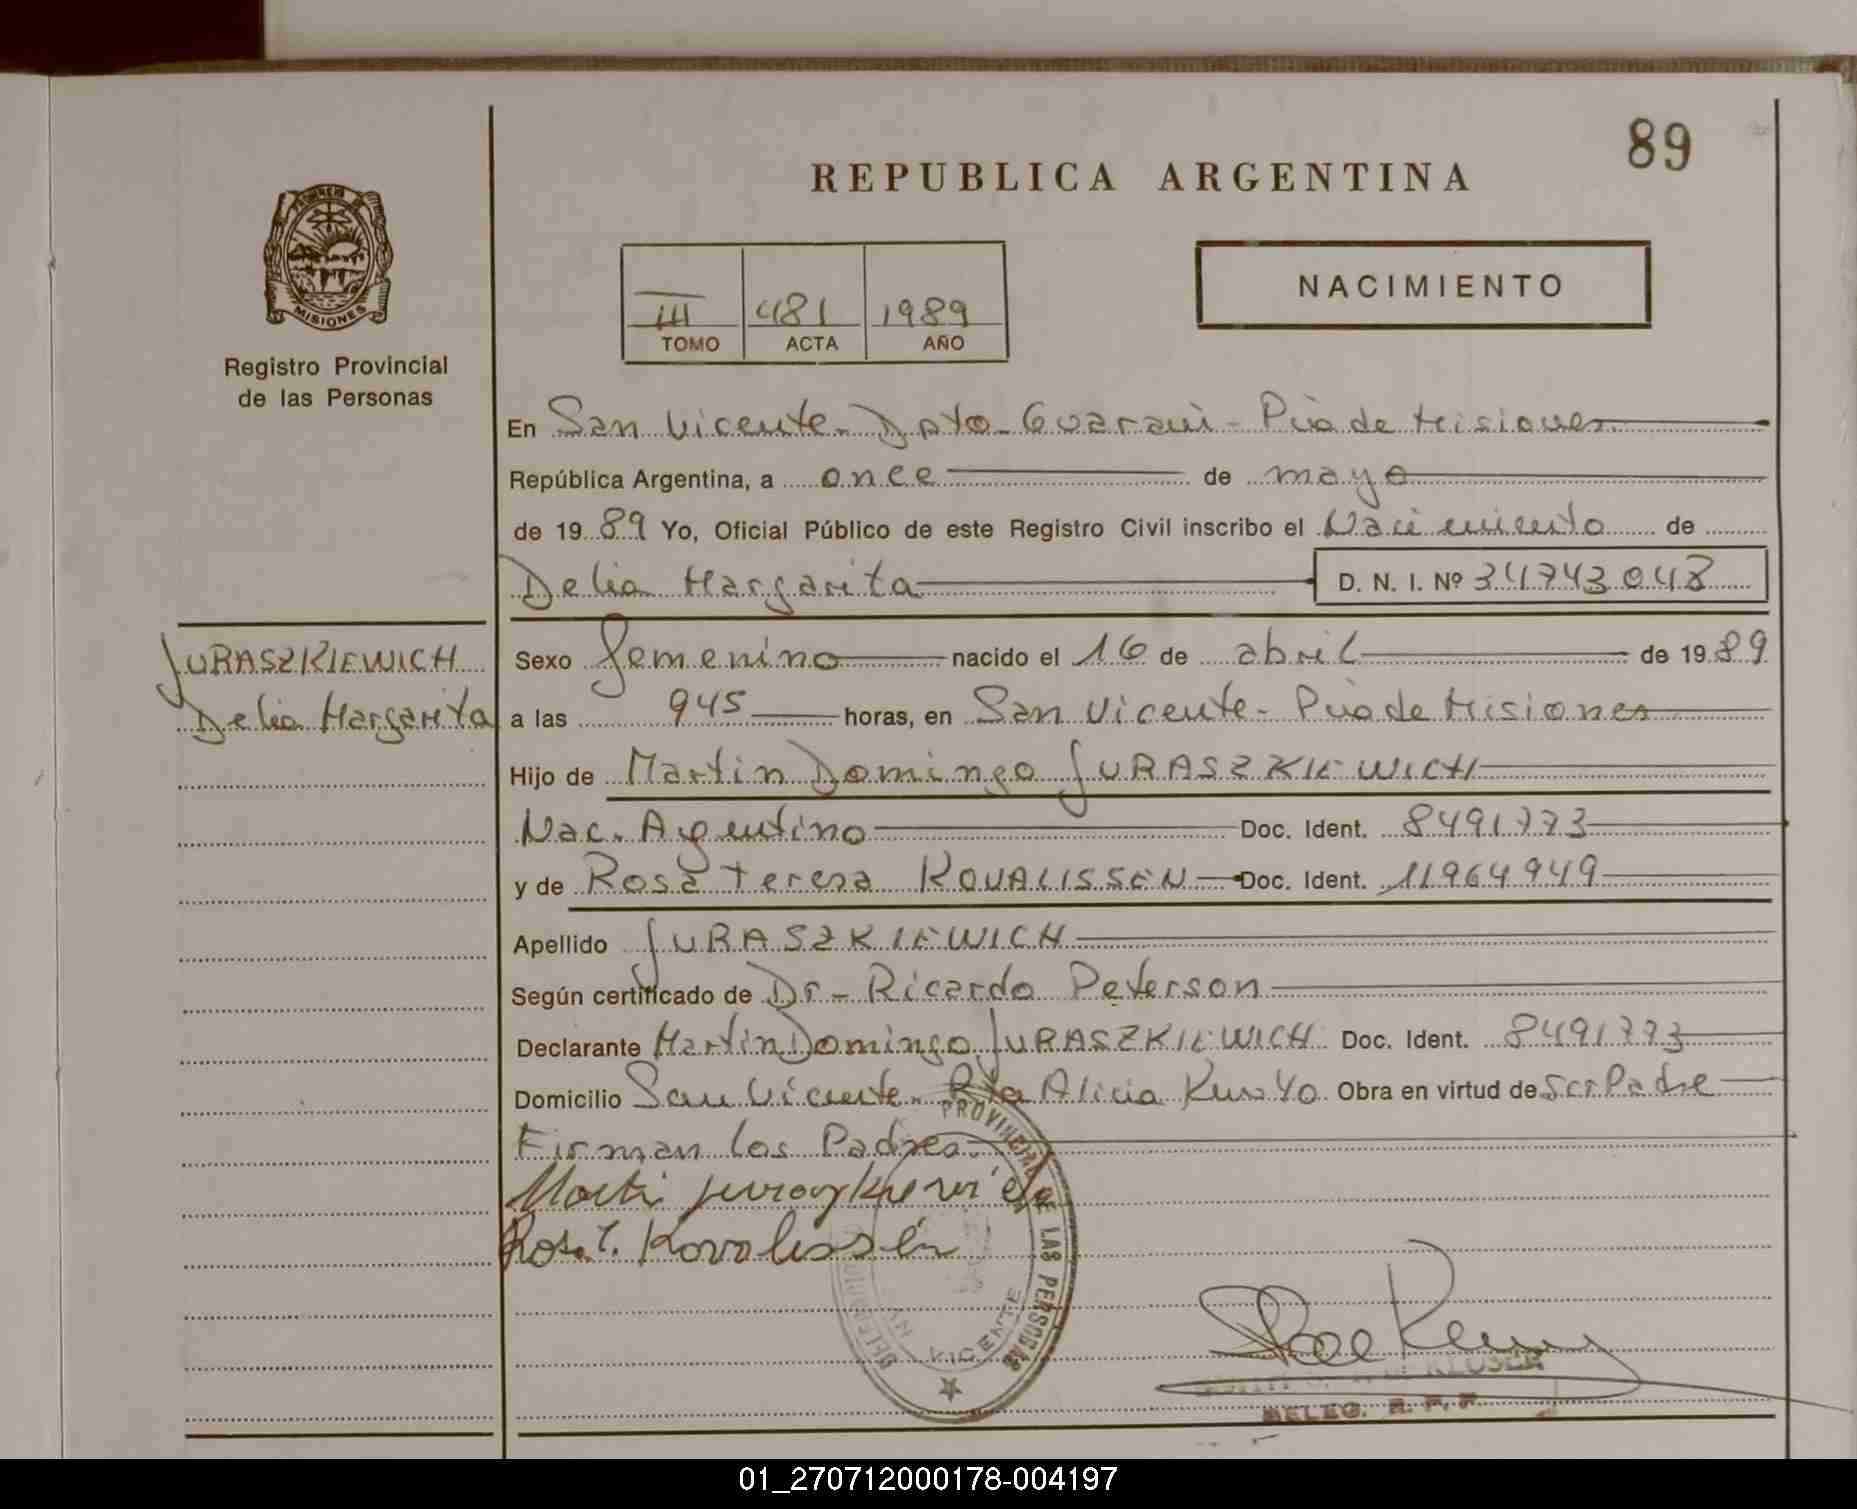 89
REPUBLICA ARGENTINA
PROVINCIA DE
MISIONES
Registro Provincial
de las Personas
III 481 1989
TOMO ACTA AÑO
NACIMIENTO
En San Vicente - Dpto - Guaraní - Pcia de Misiones
República Argentina, a once de mayo
de 19 89 Yo, Oficial Público de este Registro Civil inscribo el Nacimiento de
Delia Margarita D. N. I. Nº 34743048
JURASZKIEWICH
Delia Margarita
Sexo femenino nacido el 16 de abril de 19 89
a las 945 horas, en San Vicente - Pcia de Misiones
Hijo de Martin Domingo JURASZKIEWICH
Nac. Argentino Doc. Ident. 8491773
y de Rosa Teresa KOVALISSEN Doc. Ident. 11964949
Apellido JURASZKIEWICH
Según certificado de Dr - Ricardo Peterson
Declarante Martin Domingo JURASZKIEWICH Doc. Ident. 8491773
Domicilio San Vicente - Alicia Obra en virtud de ser Padre
Firman los Padres.
Rosa T. Kovalissén
PROVINCIAL DE LAS PERSONAS
VICENTE
KLUSER
DELEG. R. P. P.
01_270712000178-004197